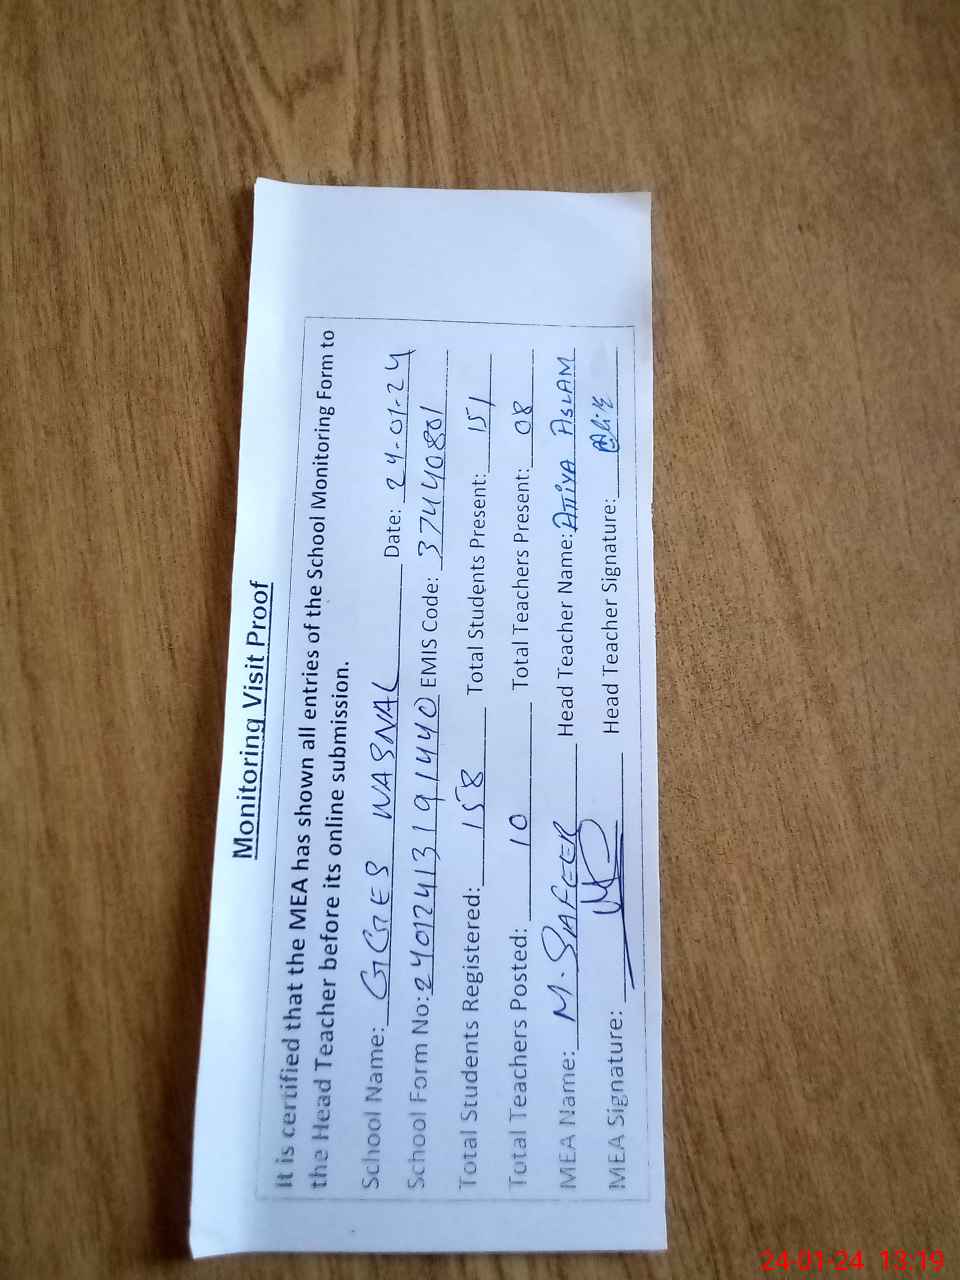 Monitoring Visit Proof
It is certified that the MEA has shown all entries of the School Monitoring Form to
the Head Teacher before its online submission.
School Name: GGES WASNAL Date: 24-01-24
School Form No: 24012413191440 EMIS Code: 37440801
Total Students Registered: 158 Total Students Present: 151
Total Teachers Posted: 10 Total Teachers Present: 08
MEA Name: M. SAFEER Head Teacher Name: ATIYA ASLAM
MEA Signature: Head Teacher Signature:
24-01-24 13:19